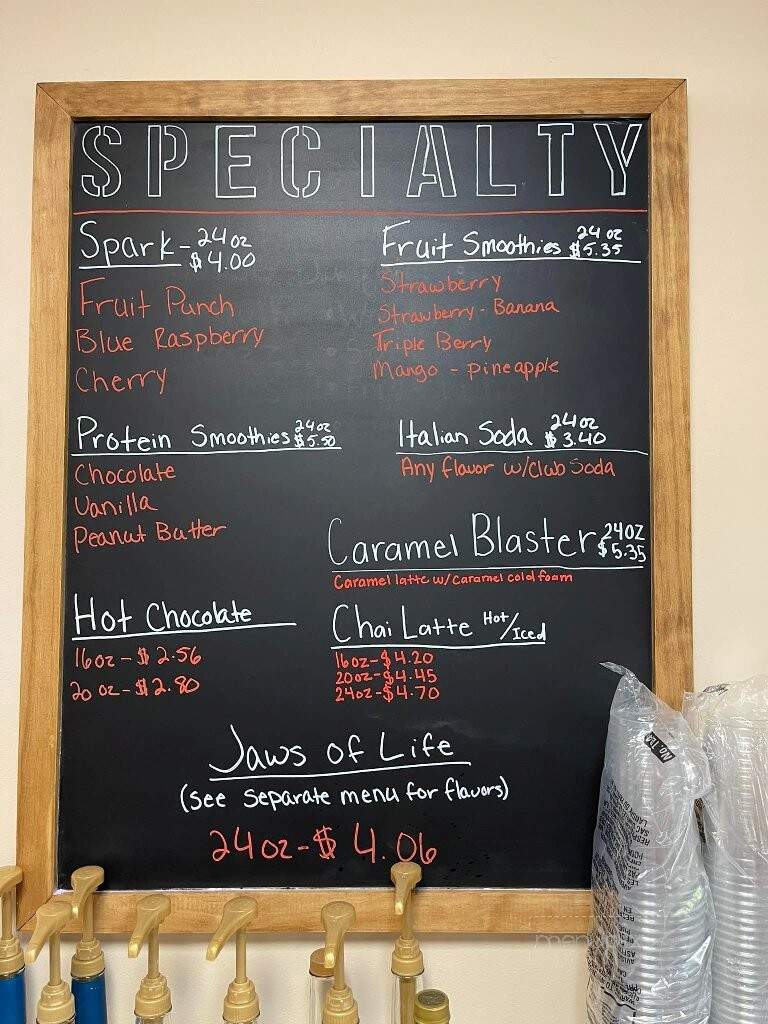 SPECIALTY
Spark - 24 oz
$4.00
Fruit Punch
Blue Raspberry
Cherry
Fruit Smoothies 24 oz
$5.35
Strawberry
Strawberry - Banana
Triple Berry
Mango - pineapple
Protein Smoothies 24oz
$5.50
Chocolate
Vanilla
Peanut Butter
Italian Soda 24oz
$3.40
Any flavor w/club Soda
Caramel Blaster 24oz
$5.35
Caramel latte w/caramel cold foam
Hot Chocolate
16oz - $2.56
20 oz - $2.80
Chai Latte Hot/Iced
16oz - $4.20
20oz - $4.45
24oz - $4.70
Jaws of Life
(see separate menu for flavors)
24oz - $4.06